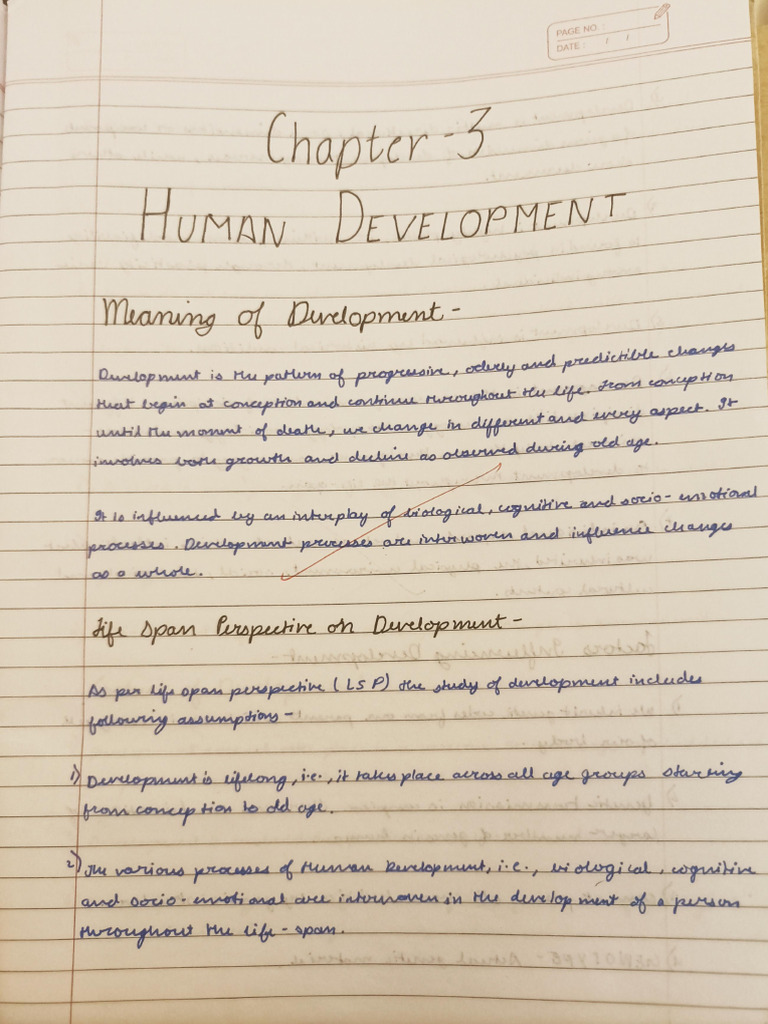 PAGE NO. :
DATE : / /
Chapter-3
HUMAN DEVELOPMENT
Meaning of Development-
Development is the pattern of progressive, oderly and predictible changes
that begin at conception and continue throughout the life. From conception
until the moment of death, we change in different and every aspect. It
involves both growth and decline as observed during old age.
It is influenced by an interplay of biological, cognitive and socio-emotional
processes. Development processes are interwoven and influence changes
as a whole.
Life Span Perspective on Development-
As per life span perspective (LSP) the study of development includes
following assumptions-
1) Development is lifelong, i.e., it takes place across all age groups starting
from conception to old age.
2) The various processes of Human Development, i.e., biological, cognitive
and socio-emotional are interwoven in the development of a person
throughout the life-span.